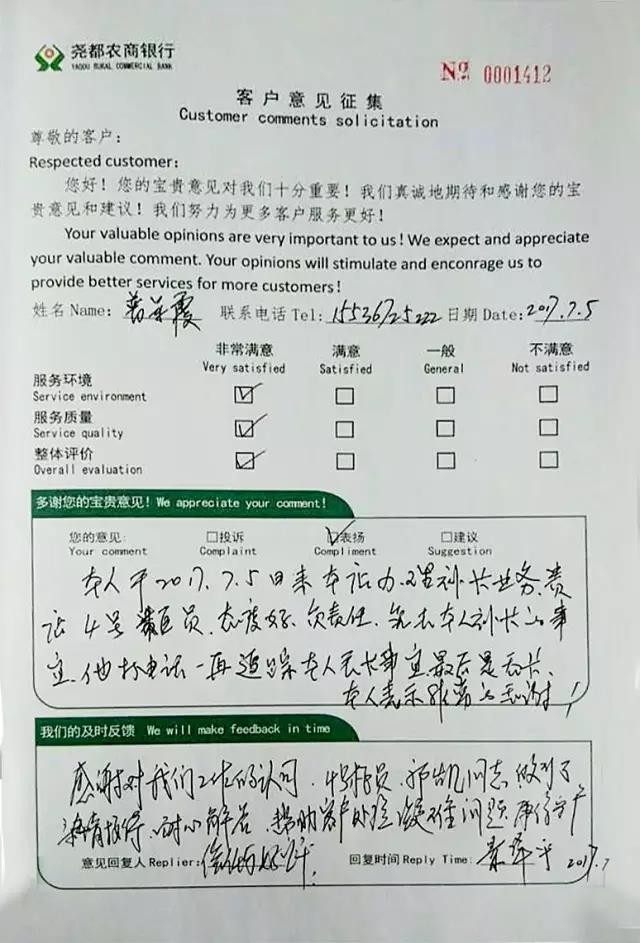 尧都农商银行
YAODU RURAL COMMERCIAL BANK
№ 0001412
客户意见征集
Customer comments solicitation
尊敬的客户：
Respected customer：
您好！您的宝贵意见对我们十分重要！我们真诚地期待和感谢您的宝
贵意见和建议！我们努力为更多客户服务更好！
Your valuable opinions are very important to us！We expect and appreciate
your valuable comment. Your opinions will stimulate and enconrage us to
provide better services for more customers！
姓名 Name： 霞 联系电话 Tel: 15536725222 日期 Date: 2017.7.5
非常满意 满意 一般 不满意
Very satisfied Satisfied General Not satisfied
服务环境
Service environment
服务质量
Service quality
整体评价
Overall evaluation
多谢您的宝贵意见！We appreciate your comment!
您的意见： 投诉 表扬 建议
Your comment Complaint Compliment Suggestion
本人于2017.7.5日来本 办理补 业务，贵
4号 员，态度好，负责任， 本人补 的事
宜，他打电话一再追踪本人 事宜，最后是
本人表示非常 感谢！
我们的及时反馈 We will make feedback in time
感谢对我们工作的认可，4号 员， 凯同志做到了
热情 ，耐心解答，帮助客户 疑难问题
意见回复人 Replier:
回复时间 Reply Time: 2017.7